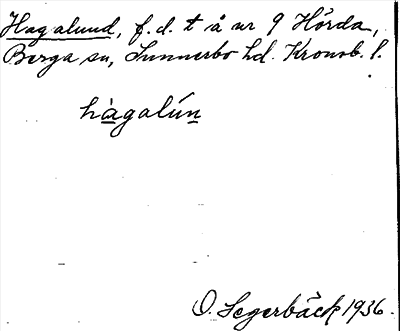 Hagalund, f. d. t å nr 9 Hörda,
Berga sn, Sunnerbo hd. Kronob. l.
hàgalún
O. Segerbäck 1936.